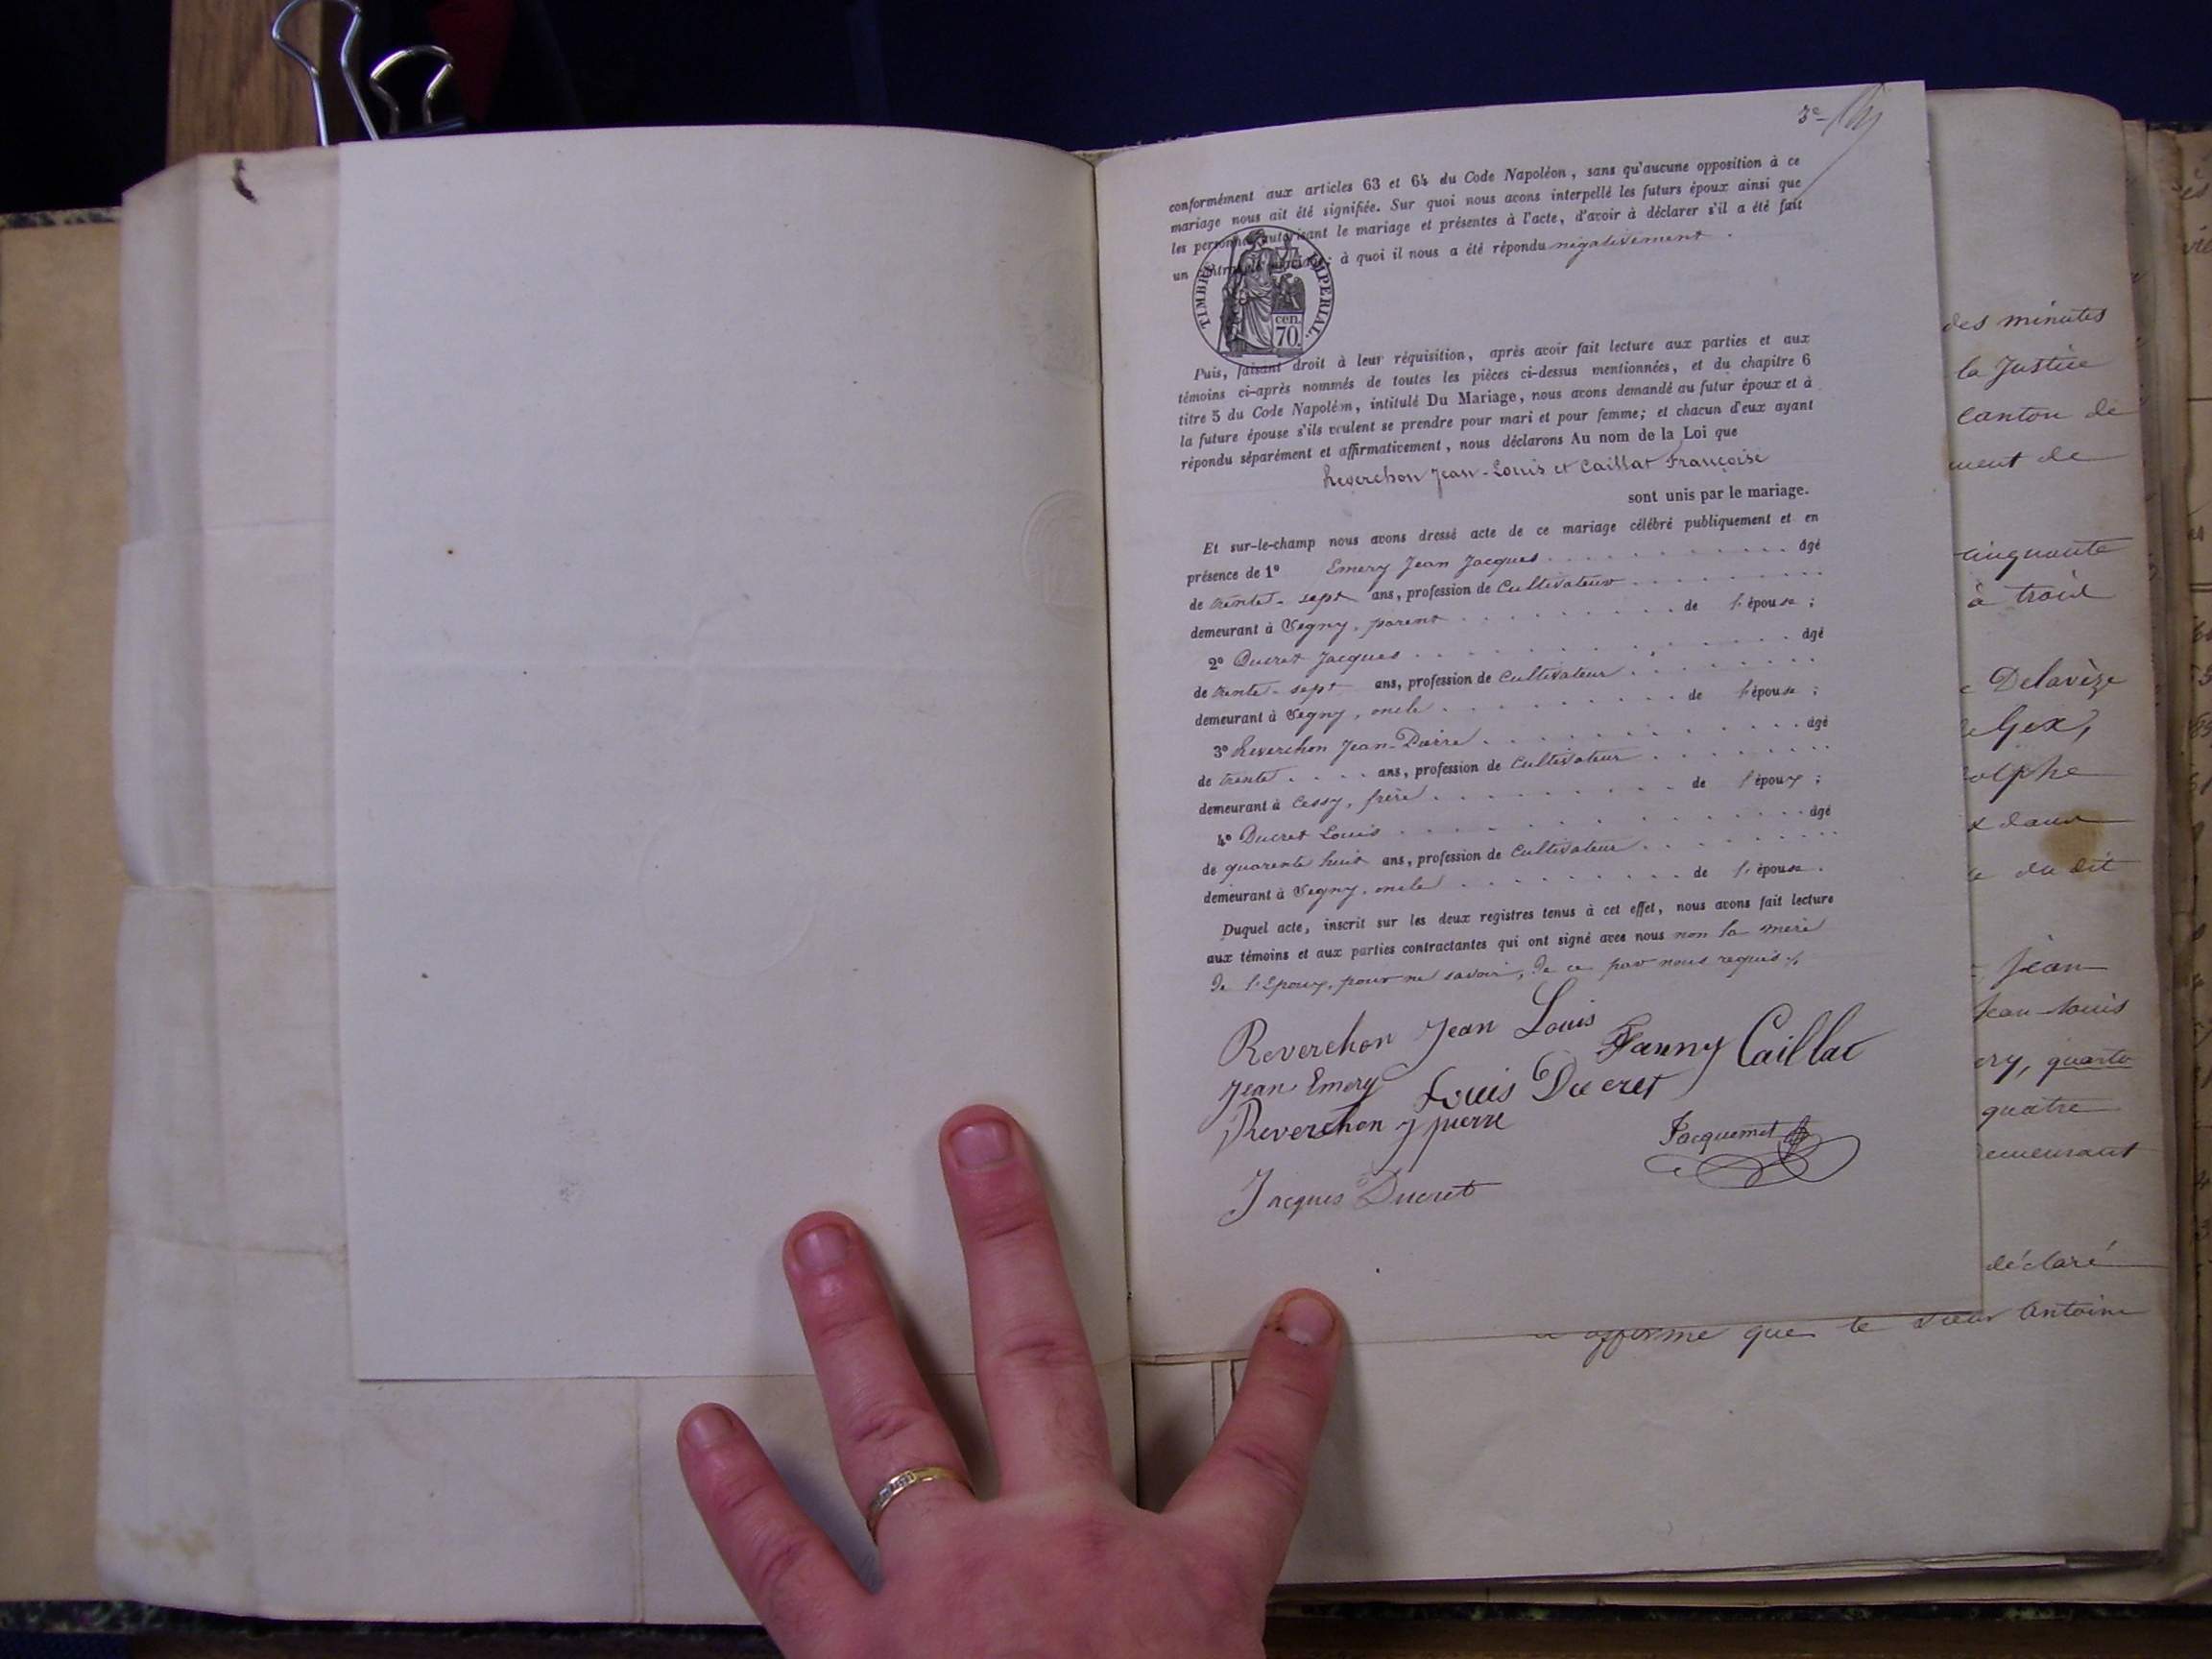 3e
conformément aux articles 63 et 64 du Code Napoléon, sans qu'aucune opposition à ce
mariage nous ait été signifiée. Sur quoi nous avons interpellé les futurs époux ainsi que
les personnes autorisant le mariage et présentes à l'acte, d'avoir à déclarer s'il a été fait
un contrat de mariage; à quoi il nous a été répondu négativement.
TIMBRE IMPERIAL
cen.
70
Puis, faisant droit à leur réquisition, après avoir fait lecture aux parties et aux
témoins ci-après nommés de toutes les pièces ci-dessus mentionnées, et du chapitre 6
titre 5 du Code Napoléon, intitulé Du Mariage, nous avons demandé au futur époux et à
la future épouse s'ils veulent se prendre pour mari et pour femme; et chacun d'eux ayant
répondu séparément et affirmativement, nous déclarons Au nom de la Loi que
Reverchon Jean-Louis et Caillat Françoise
sont unis par le mariage.
Et sur-le-champ nous avons dressé acte de ce mariage célébré publiquement et en
présence de 1° Emery Jean Jacques âgé
de trente-sept ans, profession de Cultivateur
demeurant à Segny, parent de l'épouse;
2° Ducret Jacques âgé
de trente-sept ans, profession de Cultivateur
demeurant à Segny, oncle de l'épouse;
3° Reverchon Jean-Pierre âgé
de trente ans, profession de Cultivateur
demeurant à Cessy, frère de l'époux;
4° Ducret Louis âgé
de quarente huit ans, profession de Cultivateur
demeurant à Segny, oncle de l'épouse.
Duquel acte, inscrit sur les deux registres tenus à cet effet, nous avons fait lecture
aux témoins et aux parties contractantes qui ont signé avec nous non la mère
de l'Epoux, pour ne savoir, de ce par nous requis.
Reverchon Jean Louis Fanny Caillat
Jean Emery Louis Ducret
Reverchon J pierre
Jacquemet
Jacques Ducret
des minutes
la Justice
Canton de
ment de
cinquante
à trois
Delavèze
Gex,
olphe
dans
du dit
Jean
Jean-Louis
ery, quarto
quatre
emeurant
déclaré
affirme que le sieur Antoine